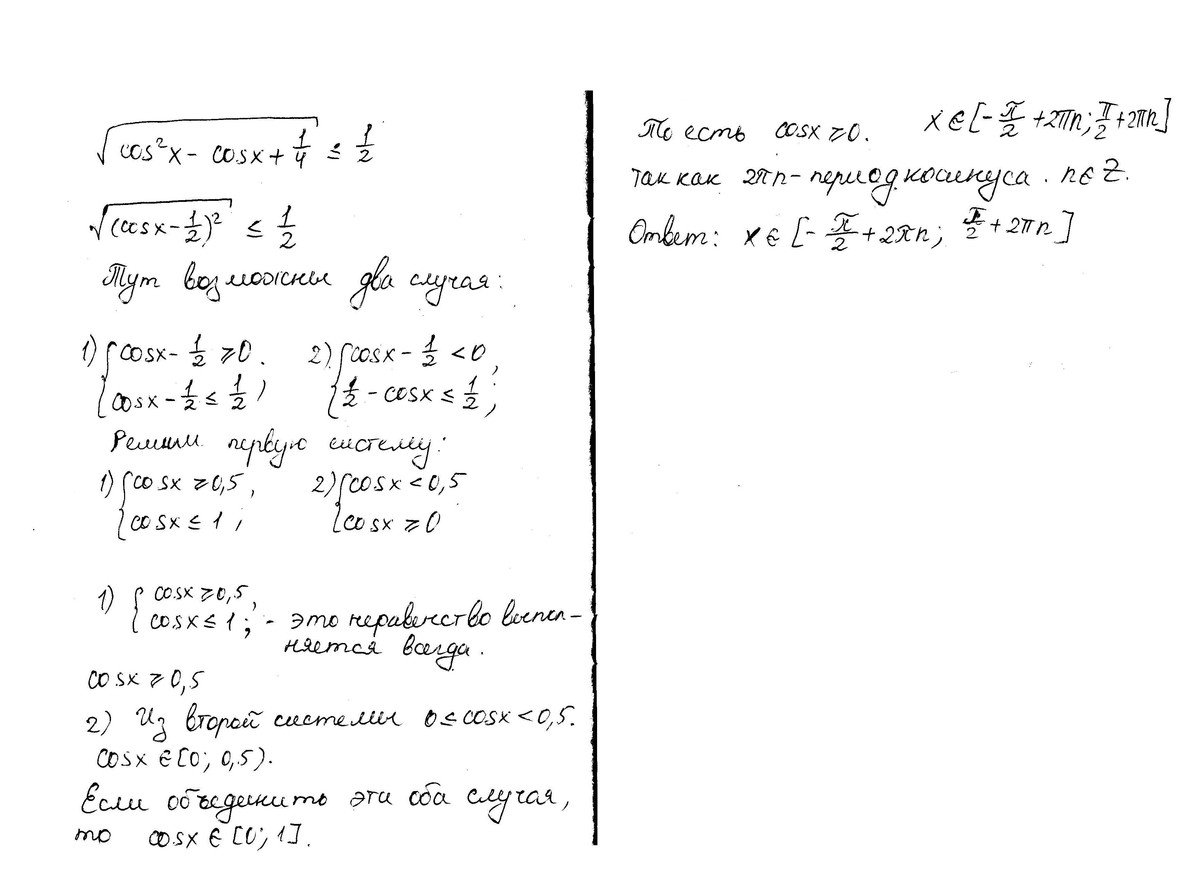 √(cos²x - cosx + 1/4) ≤ 1/2
√((cosx - 1/2)²) ≤ 1/2
Тут возможны два случая:
1) { cosx - 1/2 ⩾ 0. 2) { cosx - 1/2 < 0,
{ cosx - 1/2 ≤ 1/2 ; { 1/2 - cosx ≤ 1/2 ;
Решим первую систему:
1) { cosx ⩾ 0,5, 2) { cosx < 0,5
{ cosx ≤ 1; { cosx ⩾ 0
1) { cosx ⩾ 0,5,
{ cosx ≤ 1; - это неравенство выпол-
няется всегда.
cosx ⩾ 0,5
2) Из второй системы 0 ≤ cosx < 0,5.
cosx ∈ [0; 0,5).
Если объединить эти оба случая,
то cosx ∈ [0; 1].
То есть cosx ⩾ 0. x ∈ [-π/2 + 2πn; π/2 + 2πn]
так как 2πn - период косинуса. n ∈ Z.
Ответ: x ∈ [-π/2 + 2πn; π/2 + 2πn]